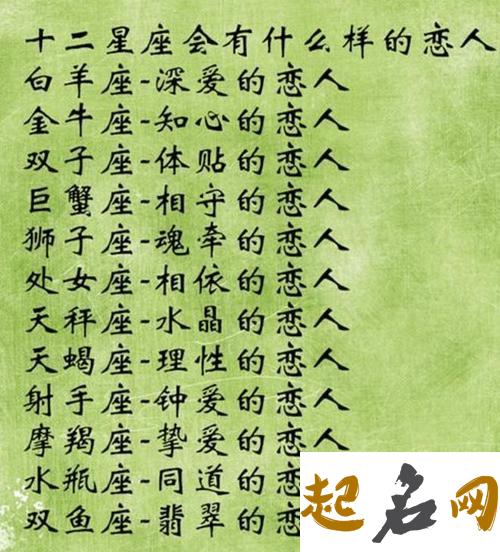 十二星座会有什么样的恋人
白羊座-深爱的恋人
金牛座-知心的恋人
双子座-体贴的恋人
巨蟹座-相守的恋人
狮子座-魂牵的恋人
处女座-相依的恋人
天秤座-水晶的恋人
天蝎座-理性的恋人
射手座-钟爱的恋人
摩羯座-挚爱的恋人
水瓶座-同道的恋
双鱼座-翡翠的恋
起名网